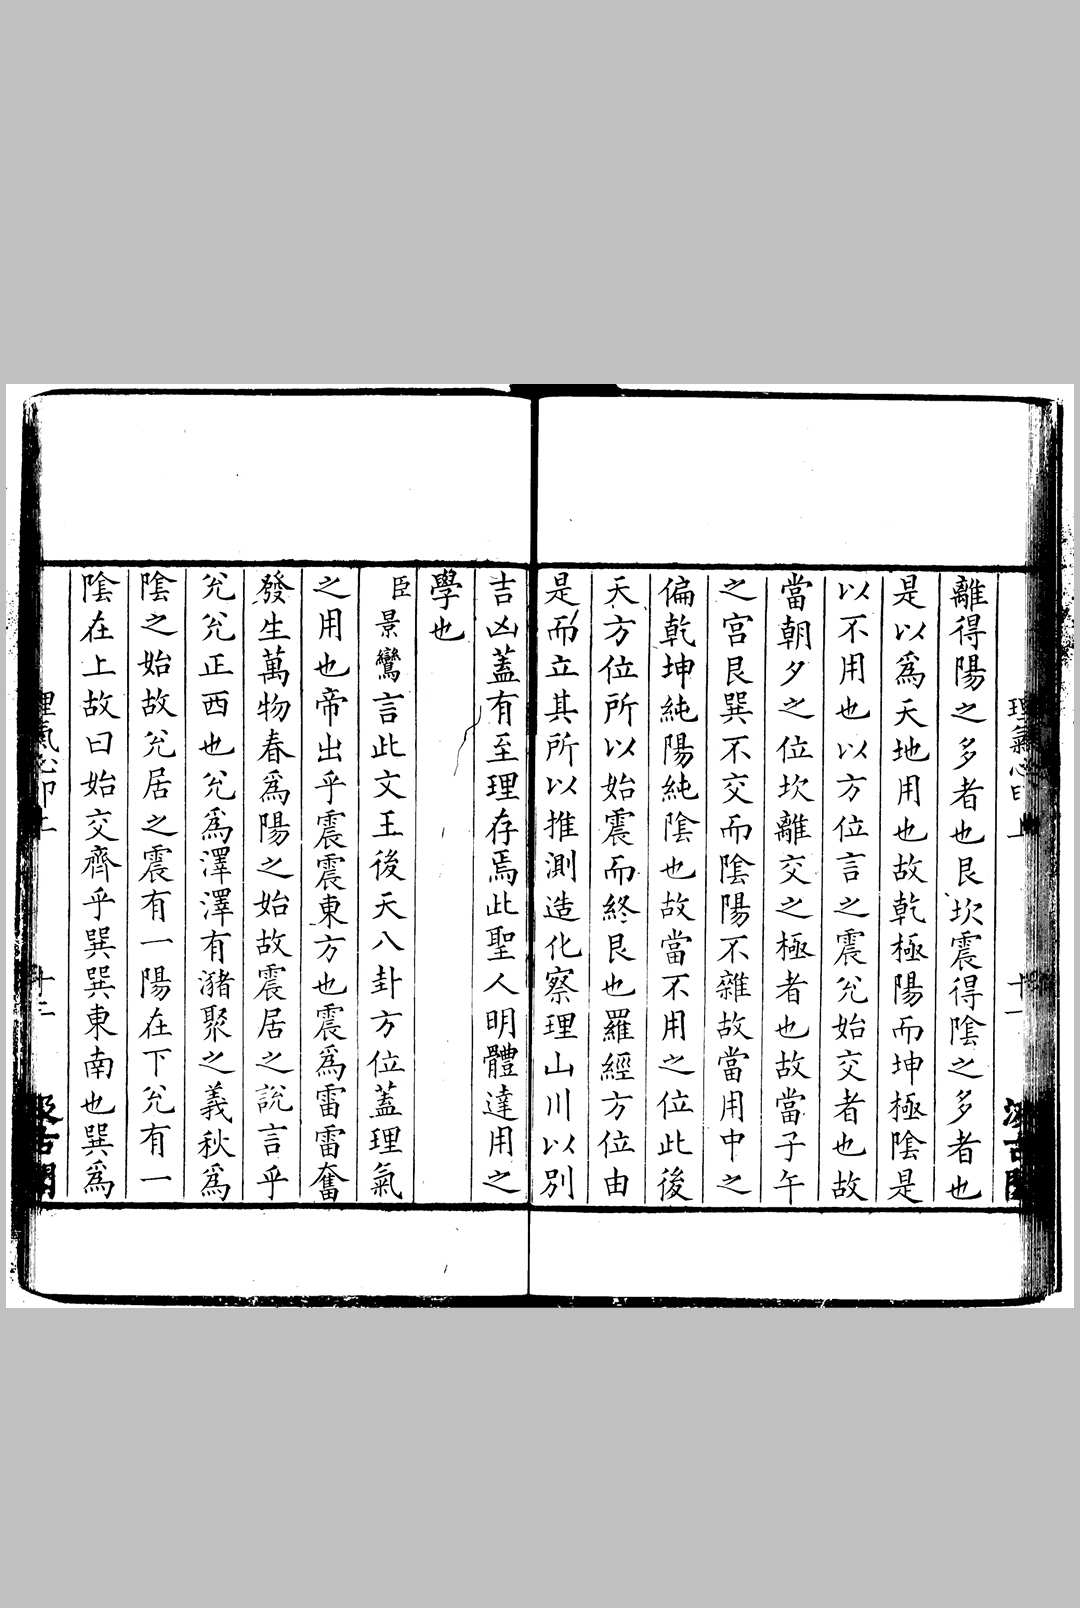 理氣心印上 十一 汲古閣
離得陽之多者也艮坎震得陰之多者也
是以爲天地用也故乾極陽而坤極陰是
以不用也以方位言之震兊始交者也故
當朝夕之位坎離交之極者也故當子午
之宮艮巽不交而陰陽不雜故當用中之
偏乾坤純陽純陰也故當不用之位此後
天方位所以始震而終艮也羅經方位由
是而立其所以推測造化察理山川以別
吉凶蓋有至理存焉此聖人明體達用之
學也
臣景鸞言此文王後天八卦方位蓋理氣
之用也帝出乎震震東方也震爲雷雷奮
發生萬物春爲陽之始故震居之說言乎
兊兊正西也兊爲澤澤有瀦聚之義秋爲
陰之始故兊居之震有一陽在下兊有一
陰在上故曰始交齊乎巽巽東南也巽爲
理氣心印上 十二 汲古閣